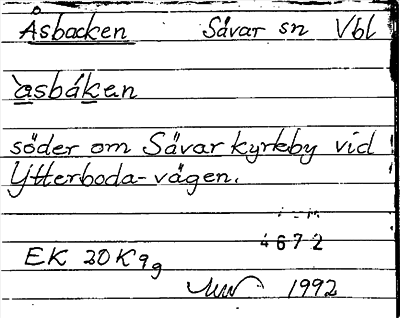 Åsbacken Sävar sn Vbl
`asbáken
söder om Sävar kyrkby vid
Ytterboda-vägen.
4672
EK 20K9g
1992